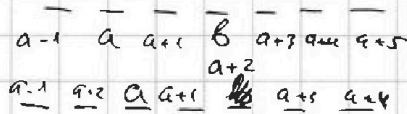 a-1 a a+1 b a+3 a+4 a+5
a+2
a-1 a+2 a a+1 a+3 a+4